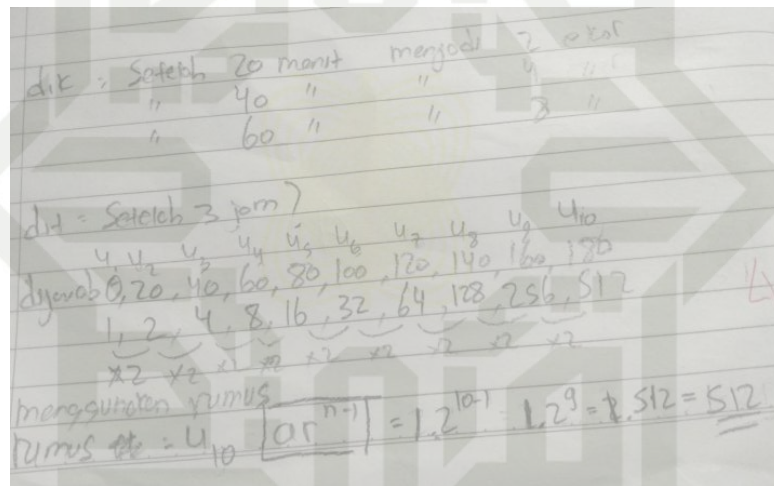 dik : Setelah 20 menit menjadi 2 ekor
" 40 " " 4 "
" 60 " " 8 "
dit = Setelah 3 jam ?
u₁ u₂ u₃ u₄ u₅ u₆ u₇ u₈ u₉ u₁₀
dijawab 0, 20, 40, 60, 80, 100, 120, 140, 160, 180
1, 2, 4, 8, 16, 32, 64, 128, 256, 512
×2 ×2 ×2 ×2 ×2 ×2 ×2 ×2 ×2
menggunakan rumus
rumus : u₁₀ arⁿ⁻¹ = 1.2¹⁰⁻¹ 1.2⁹ = 1.512 = 512
4